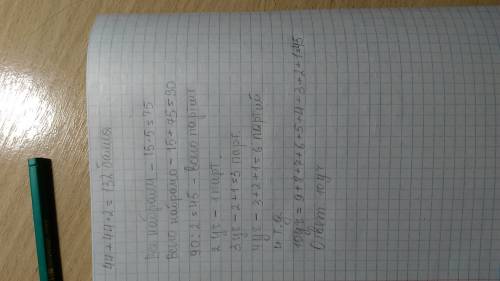 44+44·2=132 баллы
Все набрали – 15·5=75
Всего набрано – 15+75=90
90:2=45 – всего партий
2 уч – 1 парт
3 уч – 2+1=3 парт.
4 уч – 3+2+1=6 партий
и т.д.
10 уч = 9+8+7+6+5+4+3+2+1=45
Ответ: 10 уч